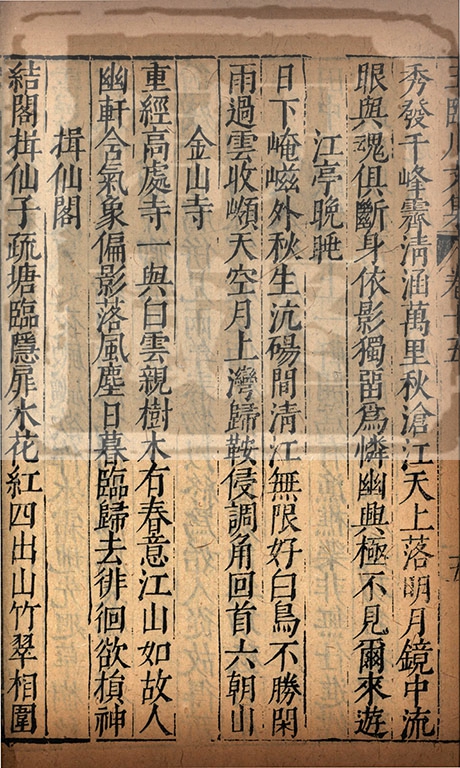 王臨川文集 卷十五 五
秀發千峰霽清涵萬里秋滄江天上落明月鏡中流
眼與魂俱斷身依影獨畱爲憐幽興極不見爾來遊
江亭晚眺
日下崦嵫外秋生沆碭間清江無限好白鳥不勝閑
雨過雲收嶺天空月上灣歸鞍侵調角回首六朝山
金山寺
重經高處寺一與白雲親樹木有春意江山如故人
幽軒含氣象偏影落風塵日暮臨歸去徘徊欲損神
揖仙閣
結閣揖仙子疏塘臨隱扉水花紅四出山竹翠相圍